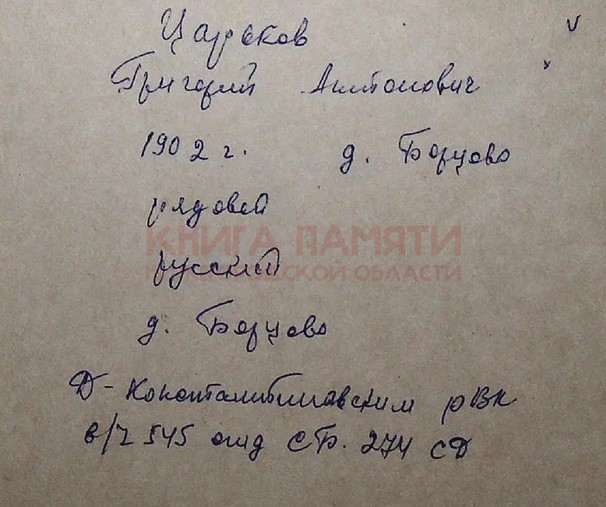 Царьков
Григорий Антонович
1902 г. д. Борцово
рядовой
КНИГА ПАМЯТИ
русский
ОБЛАСТИ
д. Борцово
Д-Константиновским рВК
в/ч 545 отд СБ. 274 СД